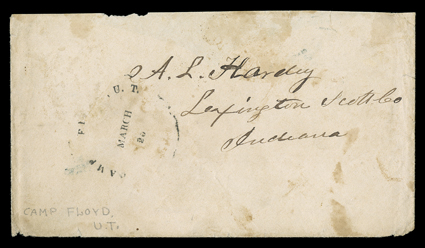 A. L. Hardy
Lexington Scott Co
Indiana
U.T.
MARCH
CAMP FLOYD.
U.T.